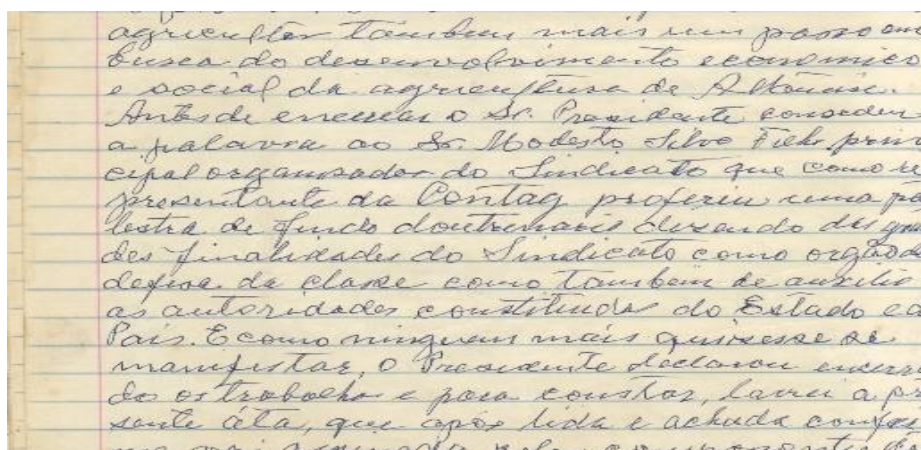 agricultor tambem mais um passo em
busca do desenvolvimento economico
e social da agricultura de Altônia.
Antes de encerrar o Sr. Presidente conceder
a palavra ao Sr. Modesto Silva Filho prin
cipal organizador do Sindicato que como re
presentante da Contag proferiu uma pa
lestra de fundo doutrinario dizendo das gran
des finalidades do Sindicato como orgão de
defesa da classe como tambem de auxilio
as autoridades constituidas do Estado e do
País. E como ninguem mais quisesse se
manifestar, o Presidente declarou encerra
do os trabalhos e para constar, lavrei a pre
sente áta, que após lida e achada confor
me vai assinada